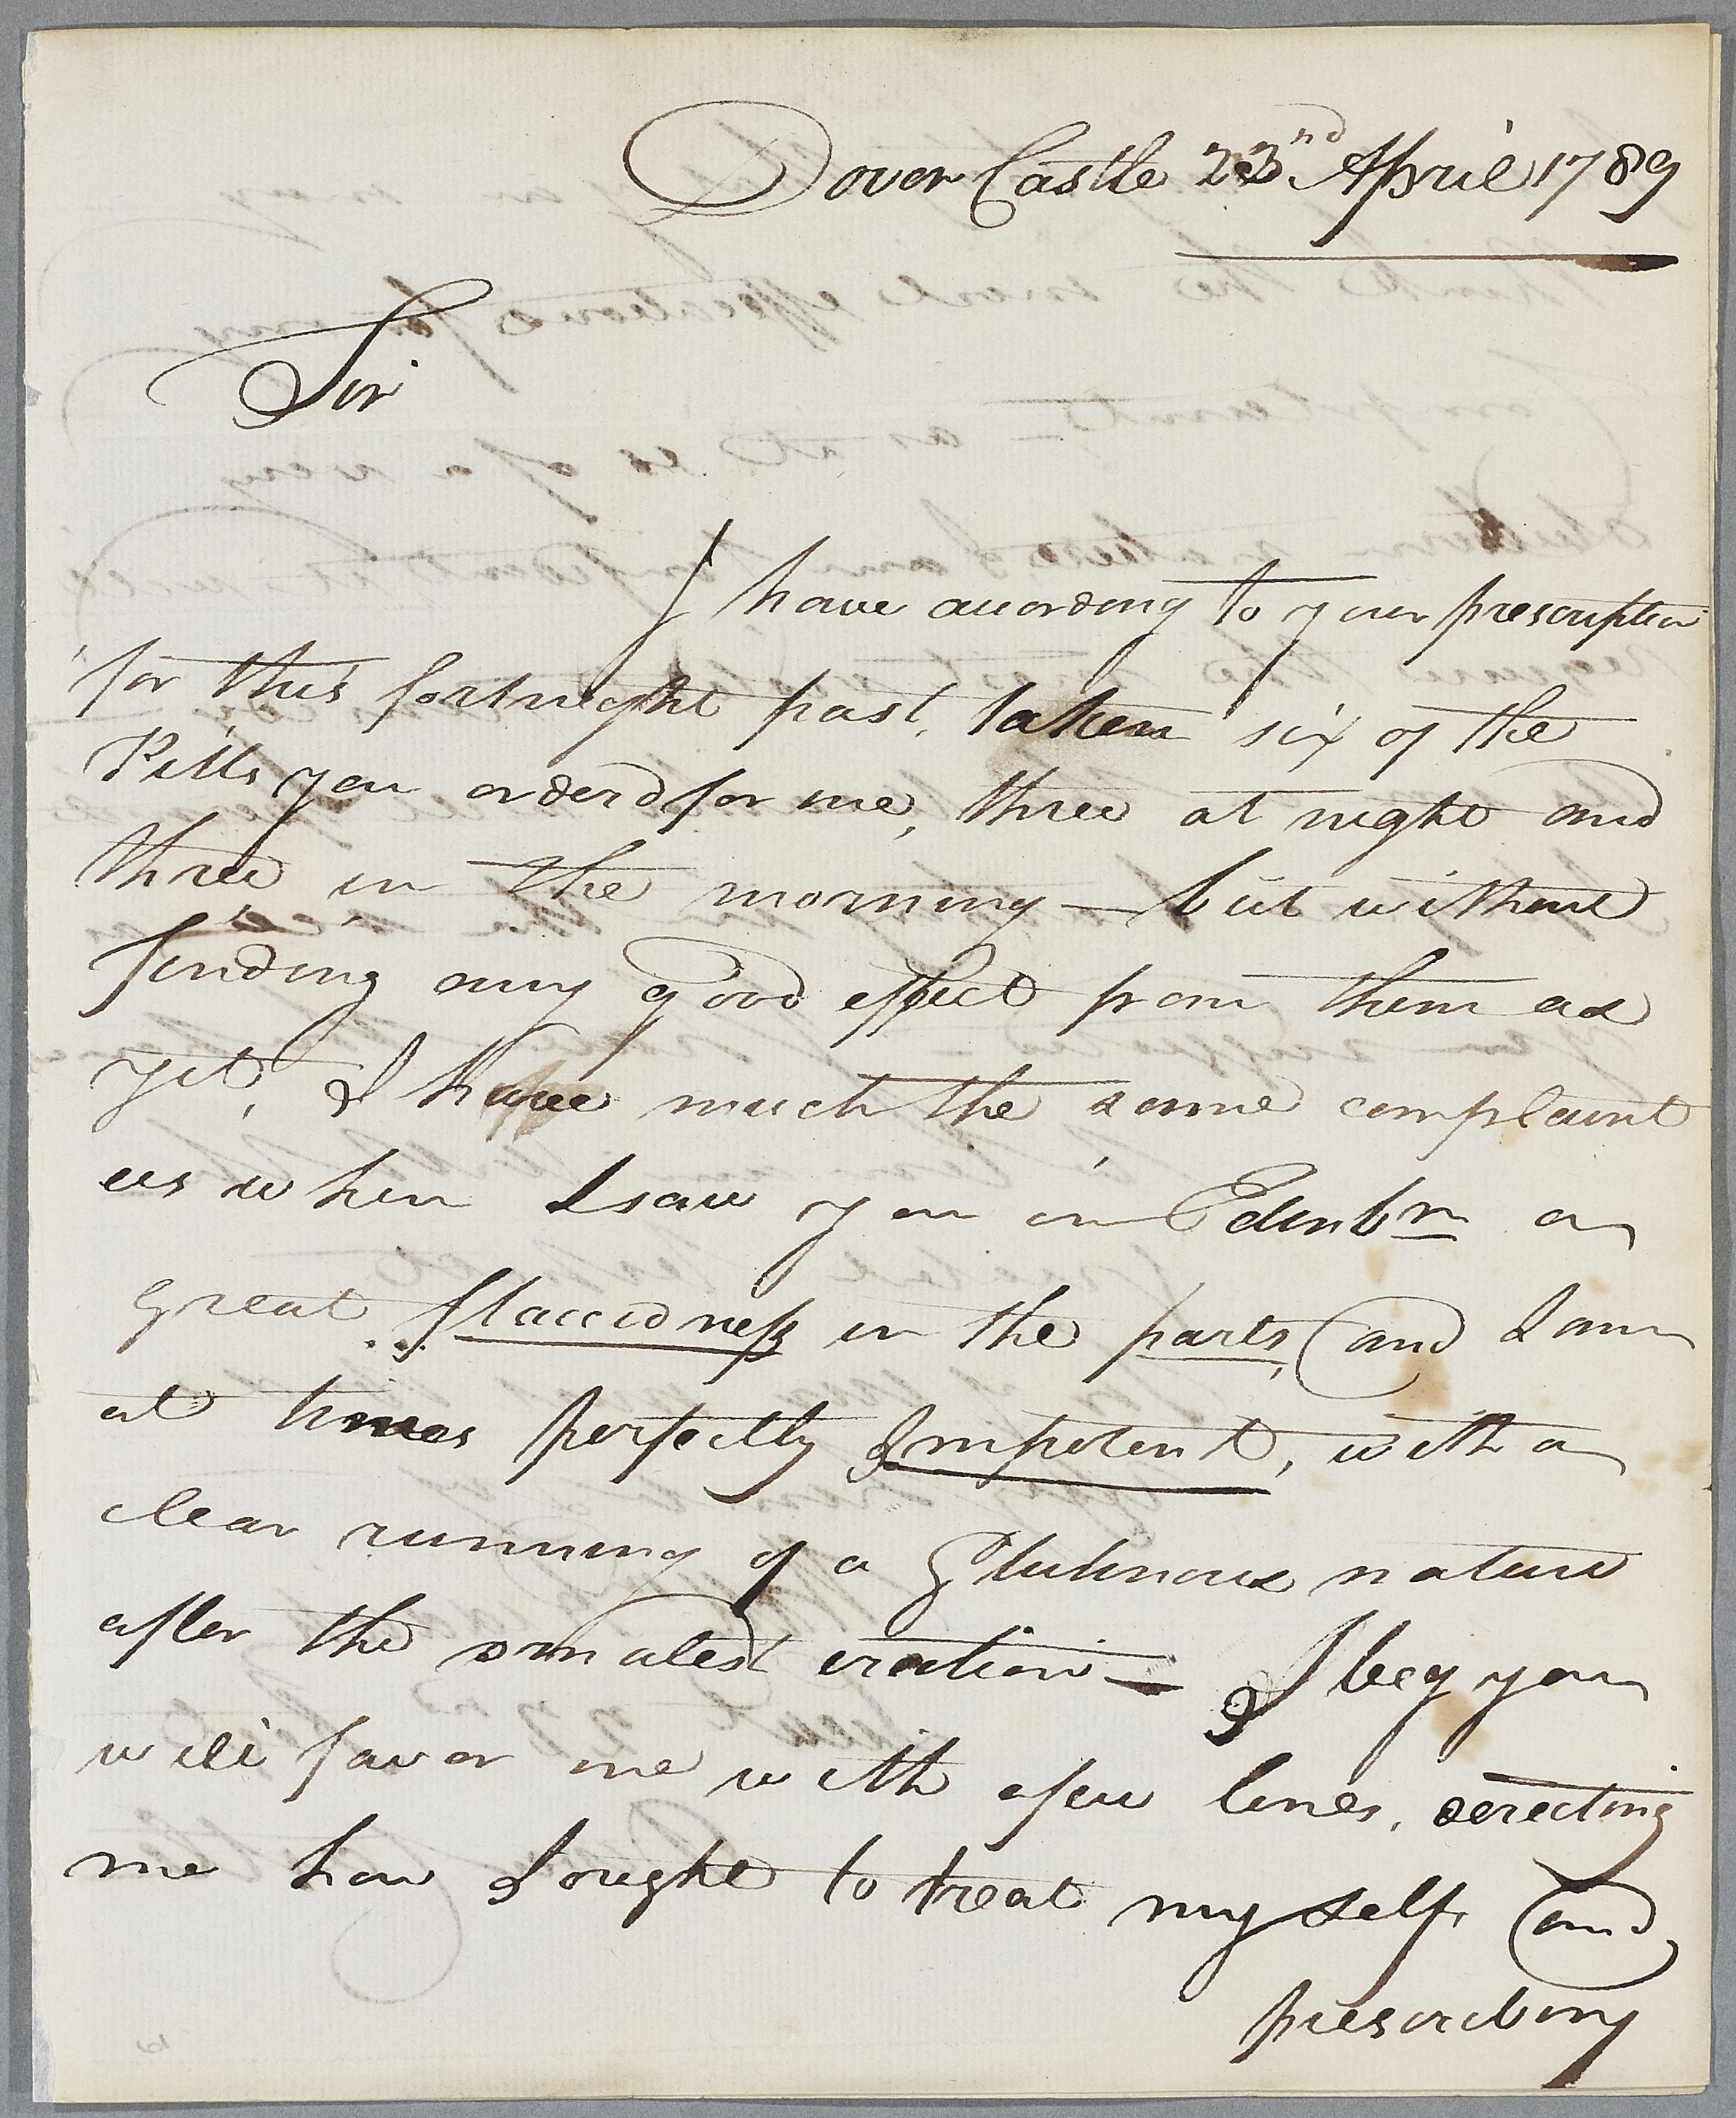 Dover Castle 22nd April 1789
Sir
I have according to your prescription
for this fortnight past, taken six of the
Pills you orderd for me, three at night and
three in the morning — but without
finding any good effect from them as
yet, I have much the same complaint
as when I saw you in Edinbr a
great flaccidness in the parts, and I am
at times perfectly Impotent, with a
clear running of a Glutinous nature
after the smalest erection — I beg you
will favor me with a few lines, derecting
me how I ought to treat my self, and
prescribing